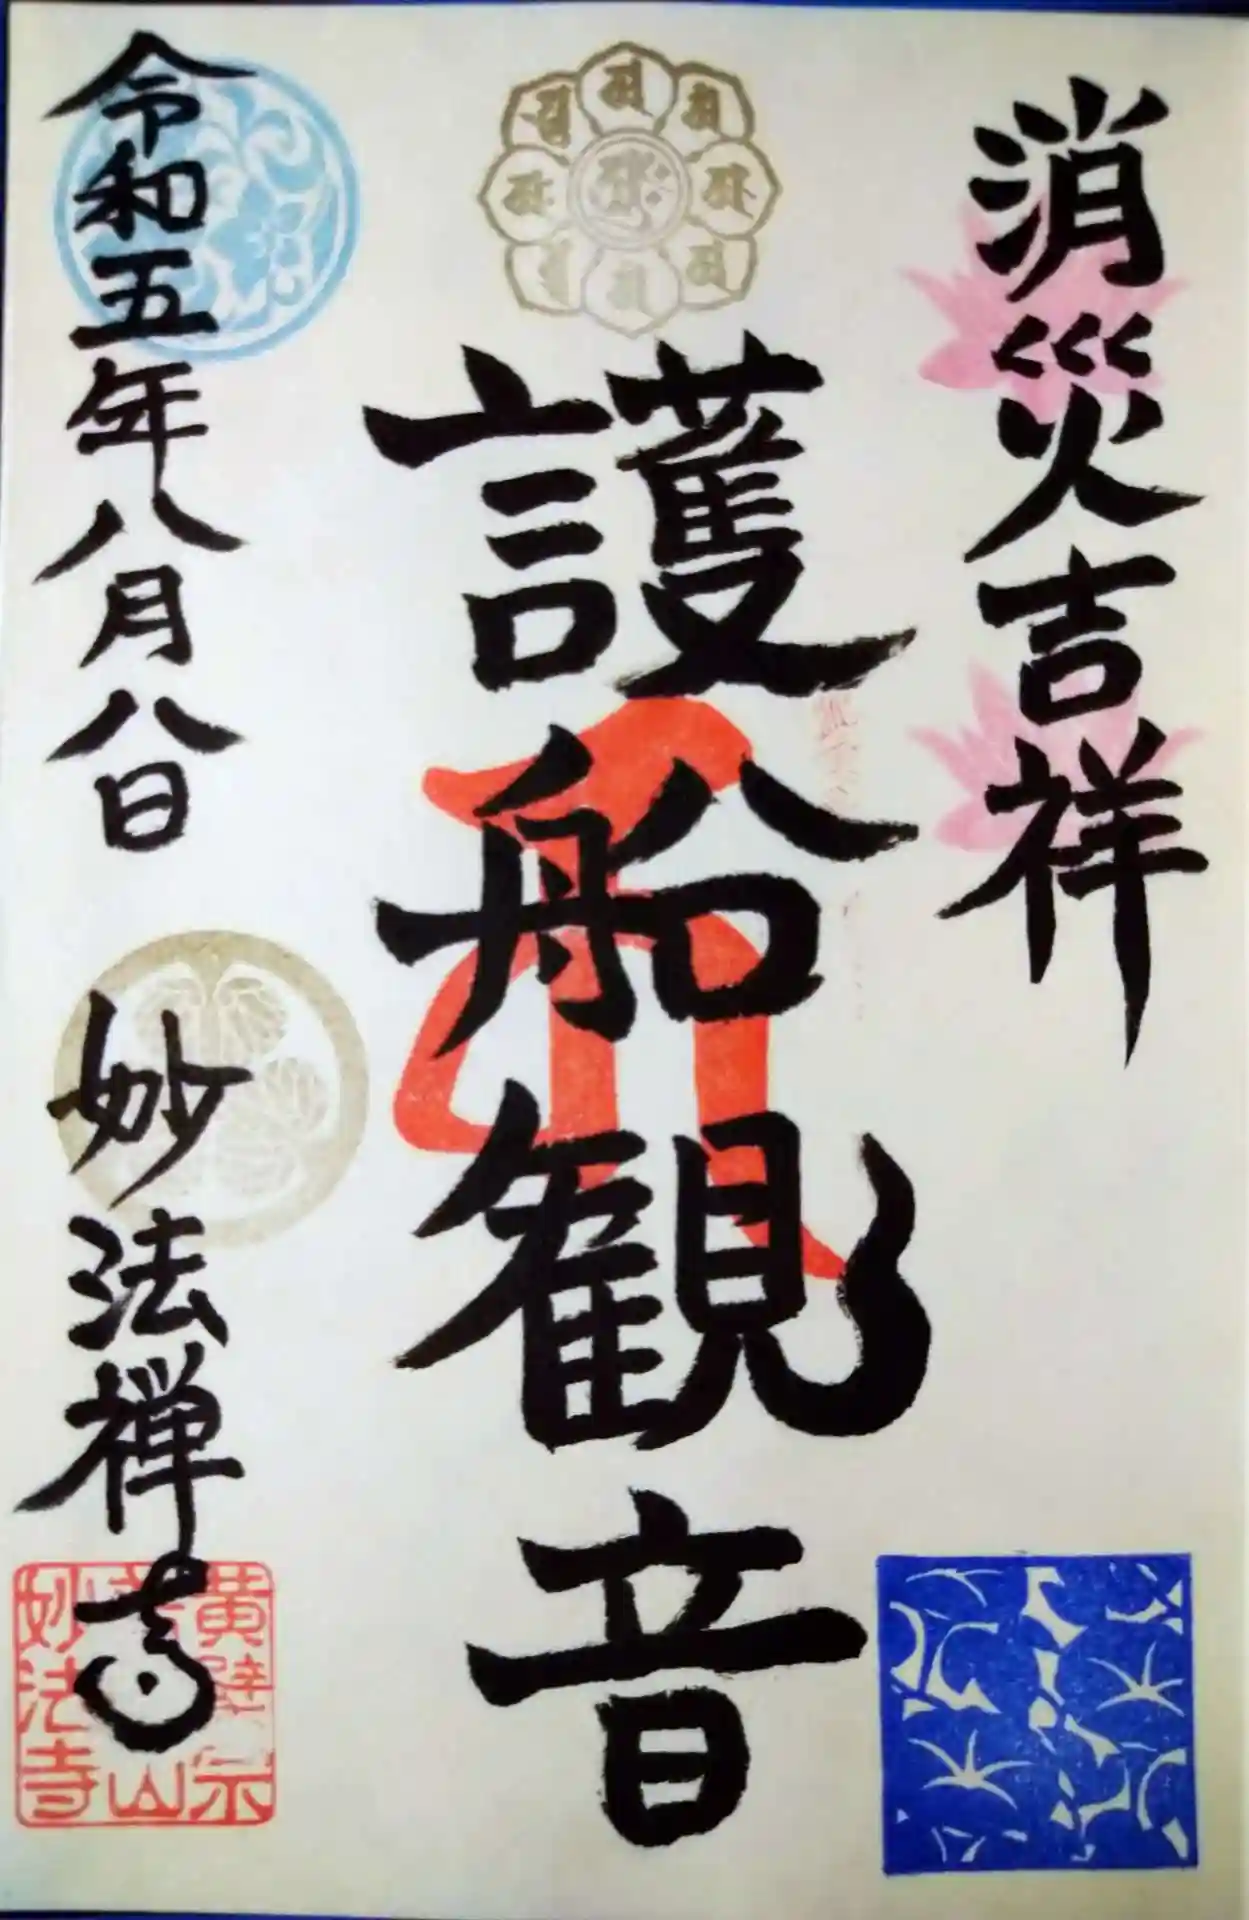 消災吉祥
護船観音
令和五年八月八日
妙法禅寺
黄檗宗
山
妙法寺